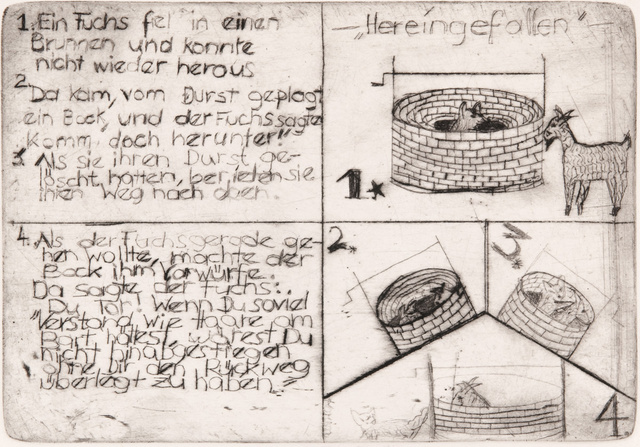 1. Ein Fuchs fiel in einen
Brunnen und konnte
nicht wieder herous
2.
Da kam, vom Durst geplagt
ein Bock, und der Fuchs sagte
"Komm doch herunter!"
3. Als sie ihren Durst ge-
löscht hatten, berieten sie
ihren Weg nach oben.
4. Als der Fuchs gerade ge-
hen wollte, machte der
Bock ihm Vorwürfe.
Da sagte der Fuchs:
"Du Tor! Wenn Du soviel
Verstand wie Haare am
Bart hättest, wärest Du
nicht hinabgestiegen
ohne Dir den Rückweg
überlegt zu haben."
— "Hereingefallen" —
1.
2.
3.
4